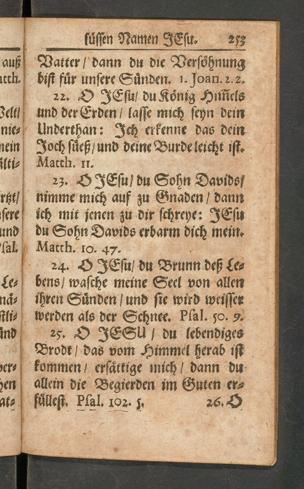 süssen Namen JEsu. 253
Vatter/ dann du die Versöhnung
bist für unsere Sünden. 1. Joan. 2. 2.
22. O JEsu/ du König Him̃els
und der Erden/ lasse mich seyn dein
Underthan: Ich erkenne das dein
Joch süeß/ und deine Burde leicht ist.
Matth. 11.
23. O JEsu/ du Sohn Davids/
nimme mich auf zu Gnaden/ dann
ich mit jenen zu dir schreye: JEsu
du Sohn Davids erbarm dich mein.
Matth. 10. 47.
24. O JEsu/ du Brunn deß Le-
bens/ wasche meine Seel von allen
ihren Sünden/ und sie wird weisser
werden als der Schnee. Psal. 50. 9.
25. O JESU/ du lebendiges
Brodt/ das vom Himmel herab ist
kommen/ ersättige mich/ dann du
allein die Begierden im Guten er-
füllest. Psal. 102. 5. 26. O